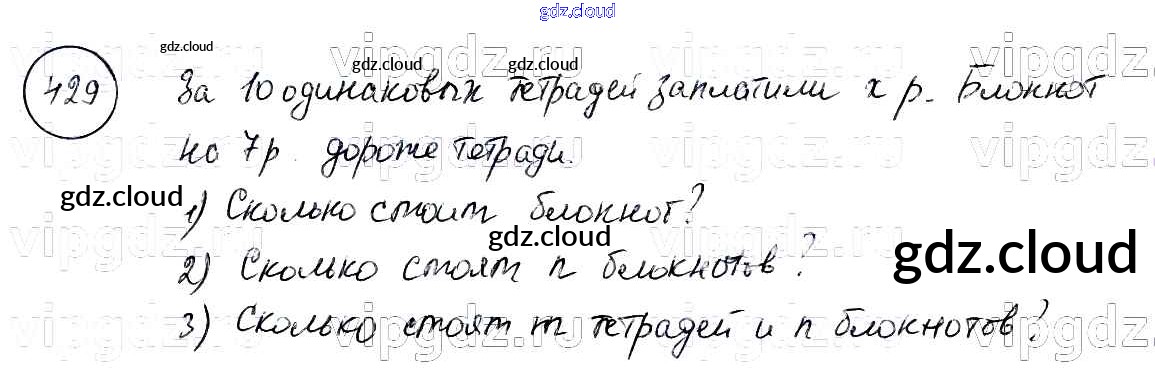 gdz.cloud
gdz.cloud
gdz.cloud
gdz.cloud
429
За 10 одинаковых тетрадей заплатили x р. Блокнот
на 7р. дороже тетради.
gdz.cloud
1) Сколько стоит блокнот?
gdz.cloud
gdz.cloud
2) Сколько стоят n блокнотов?
3) Сколько стоят m тетрадей и n блокнотов?
vipgdz.ru